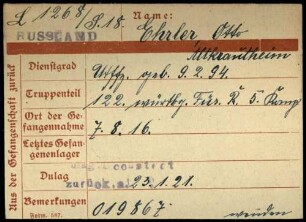 L 1268/S.18. Name:
RUSSLAND Ehrler Otto
Altkrautheim
Dienstgrad Utffz. geb. 9.2.94.
Truppenteil 122. württbg. Füs. R. 5. Komp
Ort der Gefangennahme 7.8.16.
Letztes Gefangenenlager
Dulag
zurück 23.1.21.
Bemerkungen 019867
Form. 587.
Aus der Gefangenschaft zurück